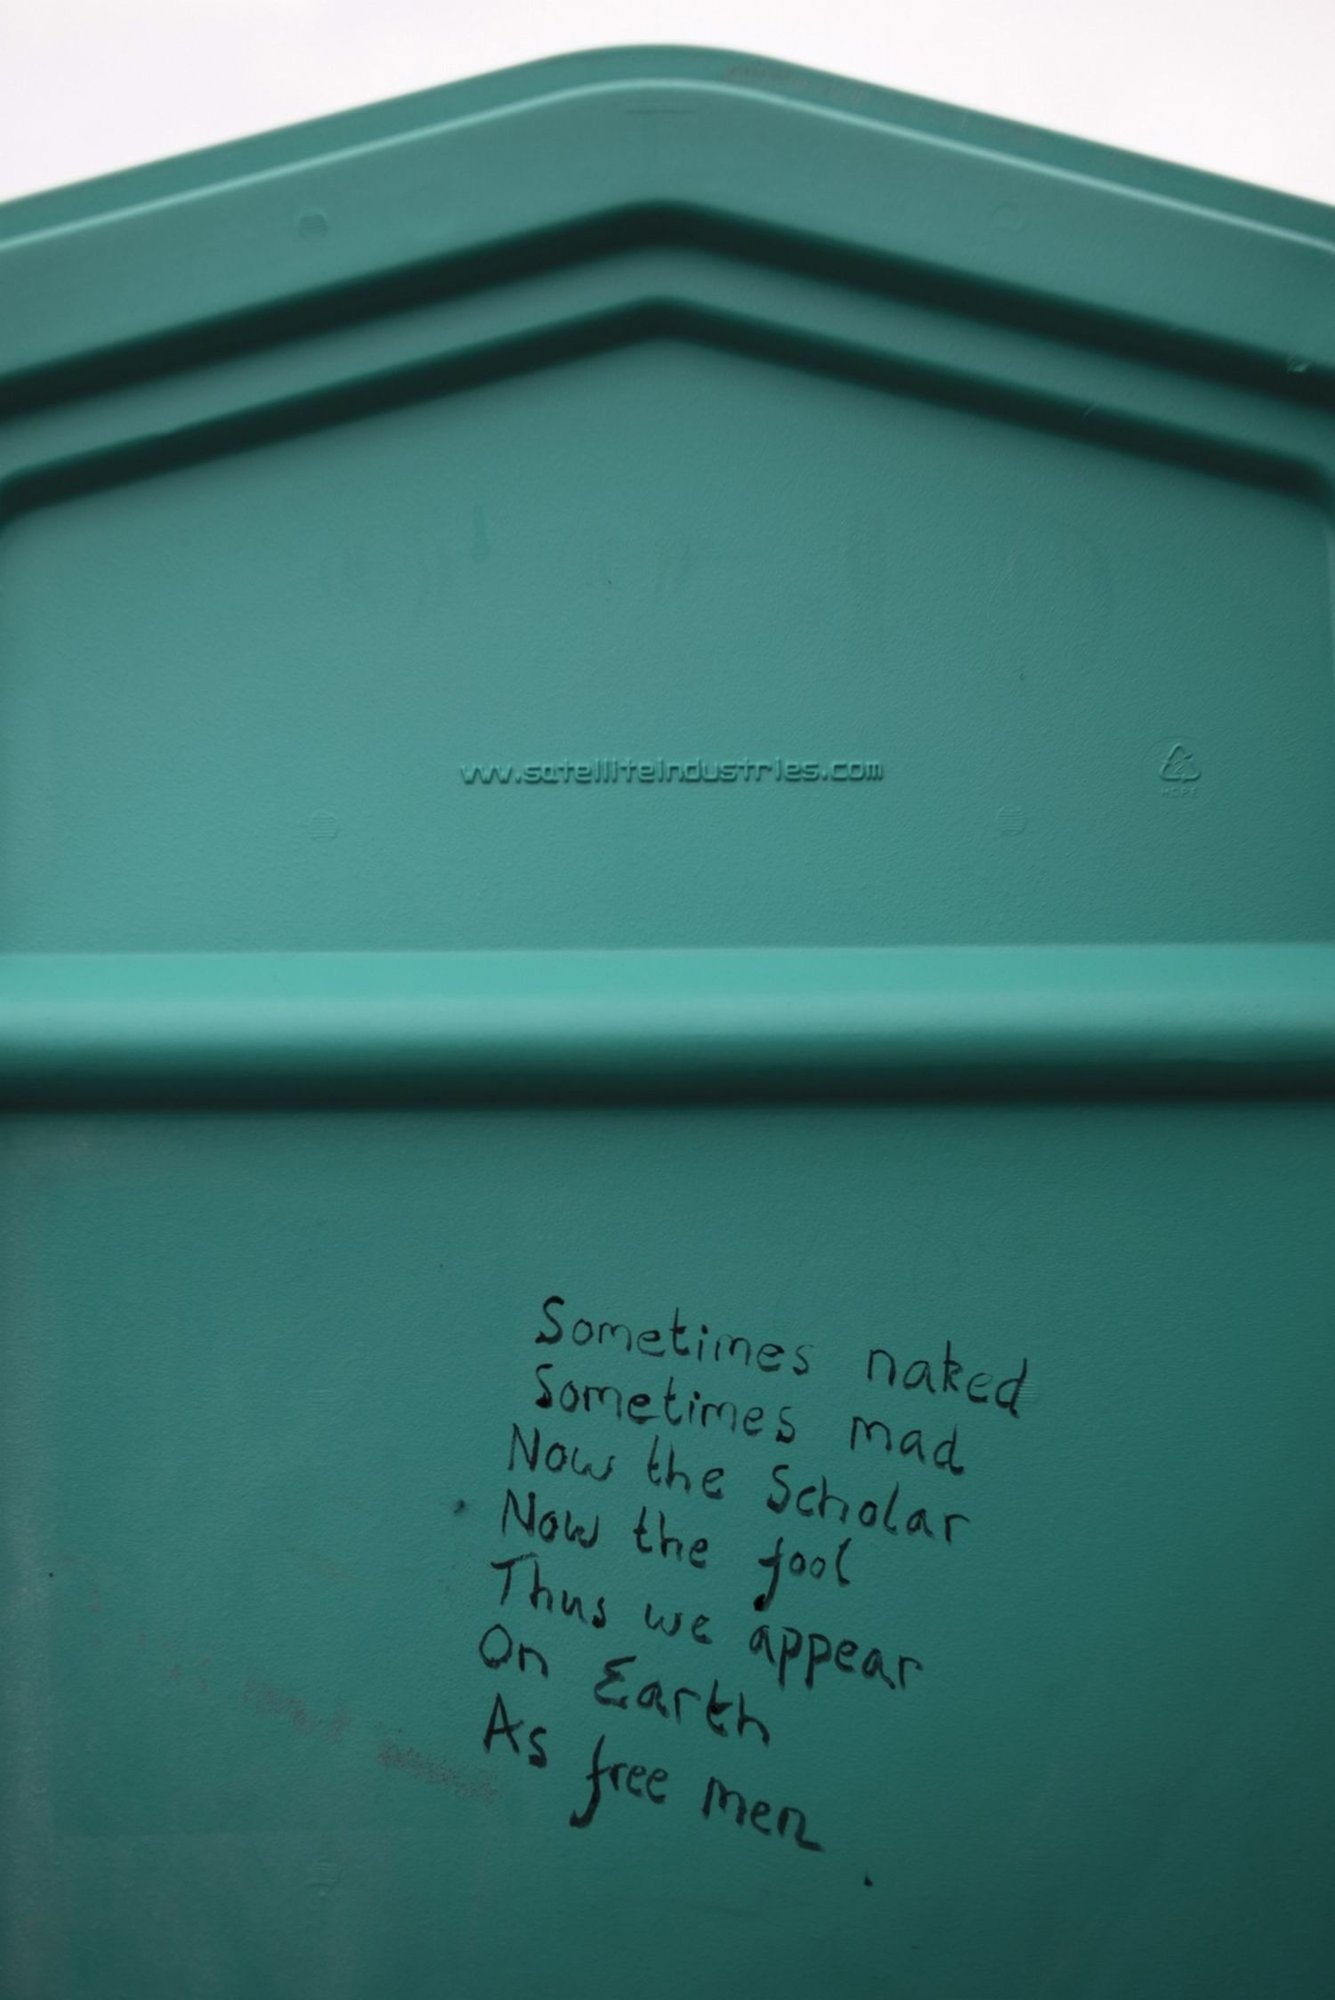 www.satelliteindustries.com
HDPE
Sometimes naked
Sometimes mad
Now the Scholar
Now the fool
Thus we appear
On Earth
As free men.